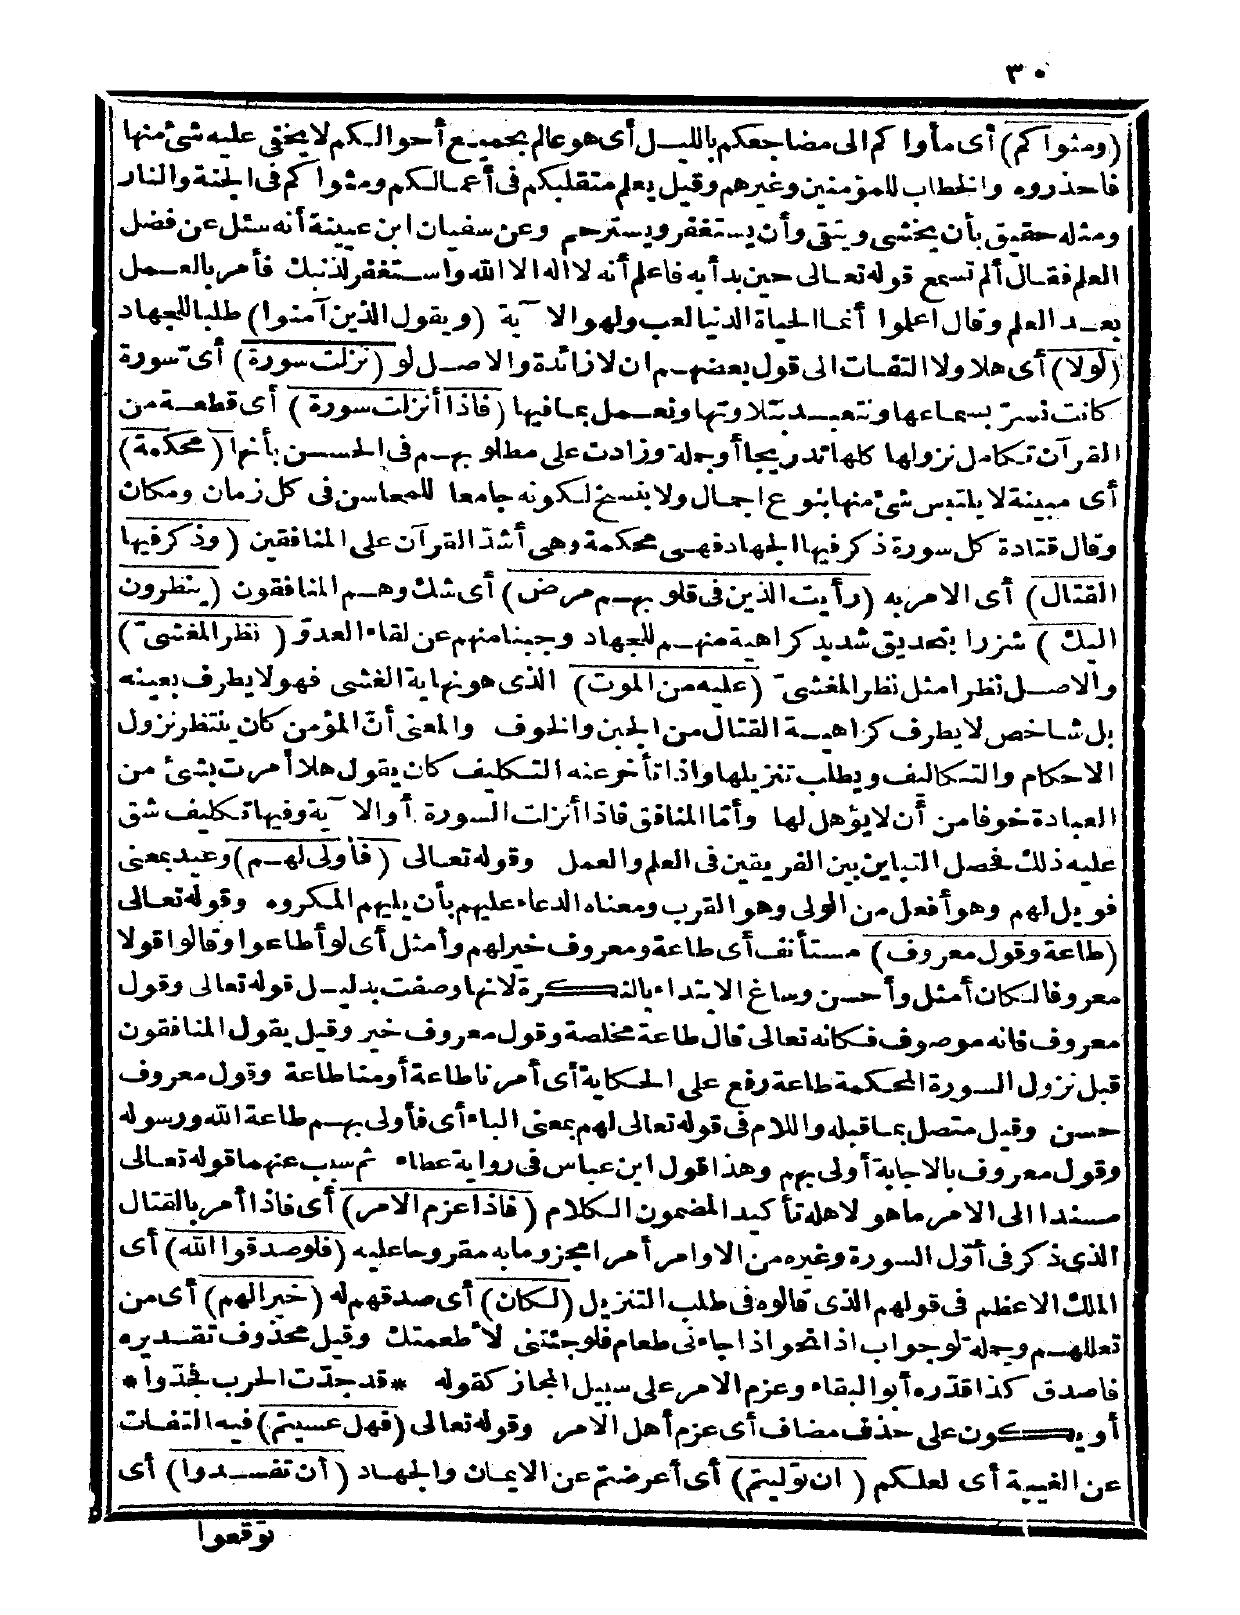 ٣٠
(ومثواكم) أى مأواكم الى مضاجعكم بالليل أى هو عالم بجميع أحوالكم لا يخفى عليه شئ منها
فاحذروه والخطاب للمؤمنين وغيرهم وقيل يعلم متقلبكم فى أعمالكم ومثواكم فى الجنة والنار
ومثله حقيق بأن يخشى ويتقى وأن يستغفر ويسترحم وعن سفيان ابن عيينة أنه سئل عن فضل
العلم فقال ألم تسمع قوله تعالى حين بدأ به فاعلم أنه لا اله الا الله واستغفر لذنبك فأمر بالعمل
بعد العلم وقال اعلموا أنما الحياة الدنيا لعب ولهو الآية (ويقول الذين آمنوا) طلبا للجهاد
(لولا) أى هلا ولا التفات الى قول بعضهم ان لا زائدة والاصل لو (نزلت سورة) أى سورة
كانت نسرّ بسماعها ونتعبد بتلاوتها ونعمل بما فيها (فاذا أنزلت سورة) أى قطعة من
القرآن تكامل نزولها كلها تدريجا أو جملة وزادت على مطلوبهم فى الحسن بأنها (محكمة)
أى مبينة لا يلتبس شئ منها بنوع اجمال ولا ينسخ لكونه جامعا للمحاسن فى كل زمان ومكان
وقال قتادة كل سورة ذكر فيها الجهاد فهى محكمة وهى أشدّ القرآن على المنافقين (وذكر فيها
القتال) أى الامر به (رأيت الذين فى قلوبهم مرض) أى شك وهم المنافقون (ينظرون
اليك) شزرا بتحديق شديد كراهية منهم للجهاد وجبنا منهم عن لقاء العدوّ (نظر المغشىّ)
والاصل نظرا مثل نظر المغشىّ (عليه من الموت) الذى هو نهاية الغشى فهو لا يطرف بعينه
بل شاخص لا يطرف كراهية القتال من الجبن والخوف والمعنى أنّ المؤمن كان ينتظر نزول
الاحكام والتكاليف ويطلب تنزيلها واذا تأخر عنه التكليف كان يقول هلا أمرت بشئ من
العبادة خوفا من أن لا يؤهل لها وأمّا المنافق فاذا أنزلت السورة أو الآية وفيها تكليف شق
عليه ذلك فحصل التباين بين الفريقين فى العلم والعمل وقوله تعالى (فأولى لهم) وعيد بمعنى
فويل لهم وهو أفعل من الولى وهو القرب ومعناه الدعاء عليهم بأن يليهم المكروه وقوله تعالى
(طاعة وقول معروف) مستأنف أى طاعة ومعروف خير لهم وأمثل أى لو أطاعوا وقالوا قولا
معروفا لكان أمثل وأحسن وساغ الابتداء بالنكرة لانها وصفت بدليل قوله تعالى وقول
معروف فانه موصوف فكانه تعالى قال طاعة مخلصة وقول معروف خير وقيل يقول المنافقون
قبل نزول السورة المحكمة طاعة رفع على الحكاية أى أمرنا طاعة أو منا طاعة وقول معروف
حسن وقيل متصل بما قبله واللام فى قوله تعالى لهم بمعنى الباء أى فأولى بهم طاعة الله ورسوله
وقول معروف بالاجابة أولى بهم وهذا قول ابن عباس فى رواية عطاء ثم سبب عنهما قوله تعالى
مسندا الى الامر ما هو لاهله تأكيدا لمضمون الكلام (فاذا عزم الامر) أى فاذا أمر بالقتال
الذى ذكر فى أوّل السورة وغيره من الاوامر أمرا مجزوما به مقروحا عليه (فلو صدقوا الله) أى
الملك الاعظم فى قولهم الذى قالوه فى طلب التنزيل (لكان) أى صدقهم له (خيرا لهم) أى من
تعللهم وجملة لو جواب اذا نحو اذا جاءنى طعام فلو جئتنى لأطعمتك وقيل محذوف تقديره
فاصدق كذا قدّره أبو البقاء وعزم الامر على سبيل المجاز كقوله * قد جدّت الحرب فجدّوا *
أو يكون على حذف مضاف أى عزم أهل الامر وقوله تعالى (فهل عسيتم) فيه التفات
عن الغيبة أى لعلكم (ان توليتم) أى أعرضتم عن الايمان والجهاد (أن تفسدوا) أى
توقعوا